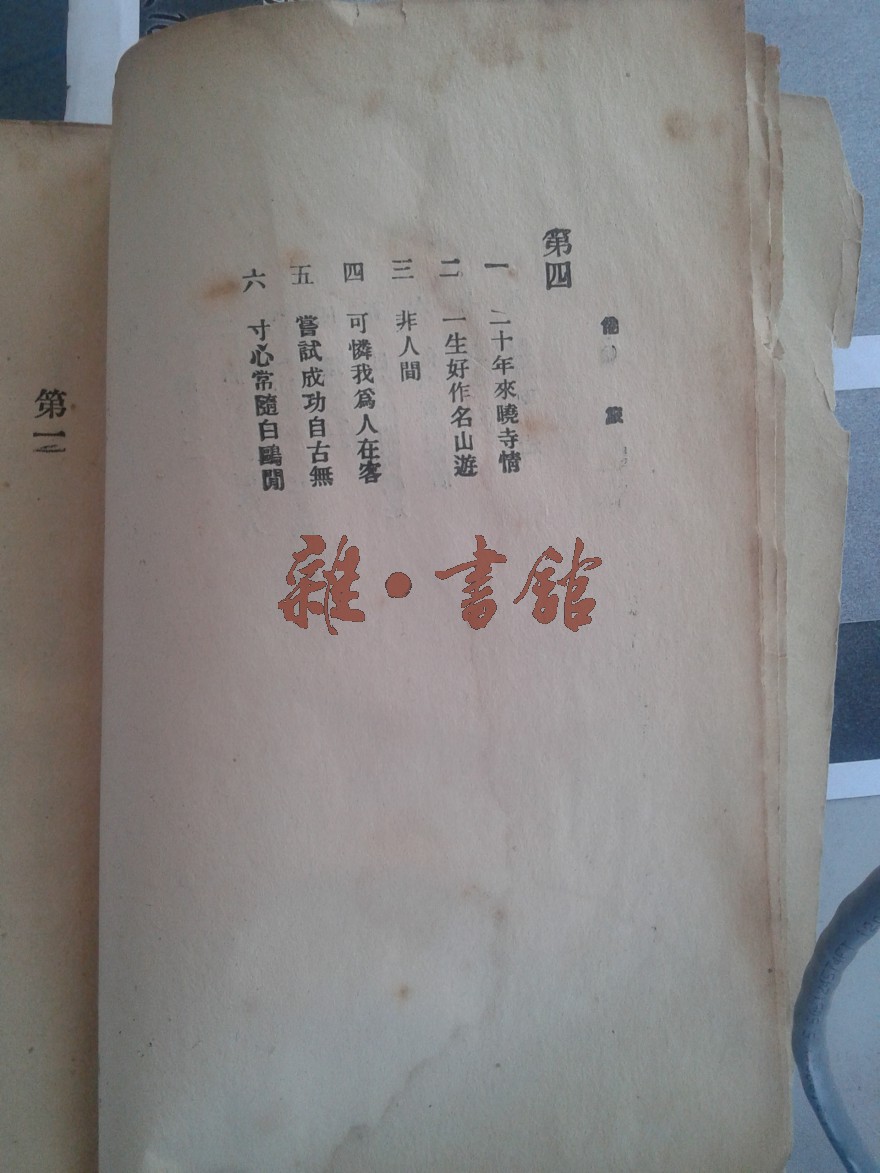 第四
一 二十年來曉寺情
二 一生好作名山遊
三 非人間
四 可憐我爲人在客
五 嘗試成功自古無
六 寸心常隨白鷗閒
第一
雜·書館